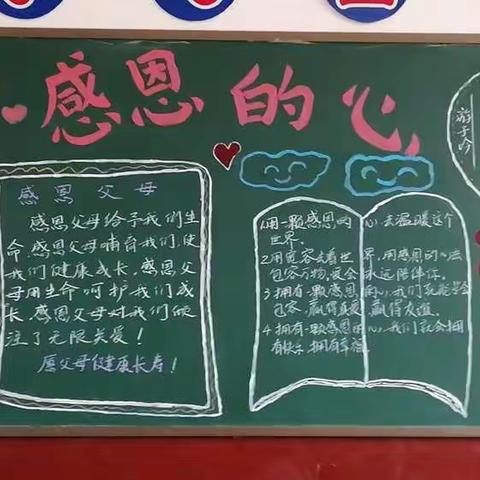 感恩的心
感恩父母
感恩父母给予我们生
命,感恩父母哺育我们,使
我们健康成长,感恩父
母用生命呵护我们成
长,感恩父母对我们倾
注了无限关爱!
愿父母健康长寿!
1.用一颗感恩的心去温暖这个
世界.
2.用宽容去看世界,用感恩的心去
包容万物,爱会永远陪伴你。
3.拥有一颗感恩的心,我们就能学会
包容,赢得真爱,赢得友谊.
4.拥有一颗感恩的心,我们就会拥
有快乐,拥有幸福.
游子吟